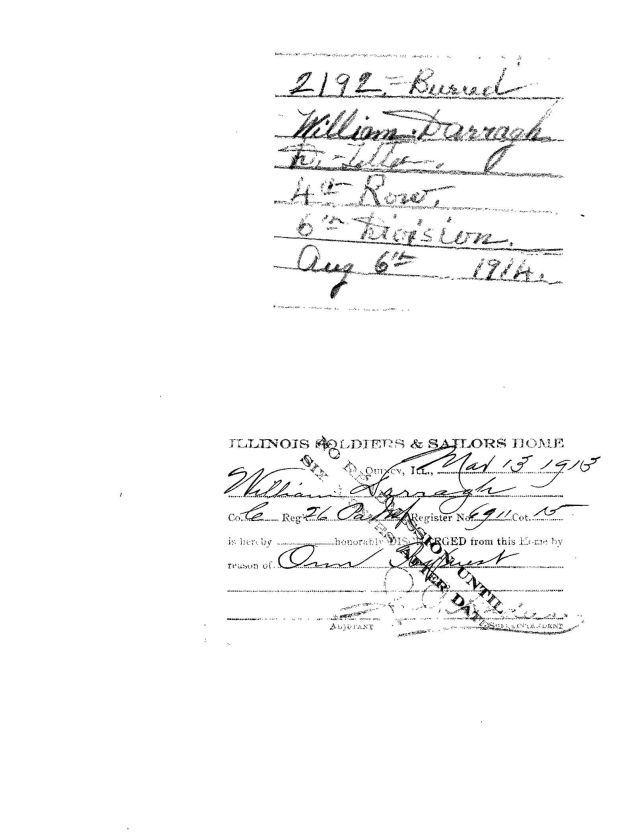 2192 = Buried
William Darragh
4th Row,
6th Division.
Aug 6th 1914.
ILLINOIS SOLDIERS & SAILORS HOME
Quincy, ILL., Mar 13 1913
William Darragh
Co. C Reg't 76 Register No. 6911 Cot. 15
is hereby honorably DISCHARGED from this Home by
reason of Own Request
NO RE-ADMISSION UNTIL
SIX MONTHS AFTER DATE
ADJUTANT SUPERINTENDENT